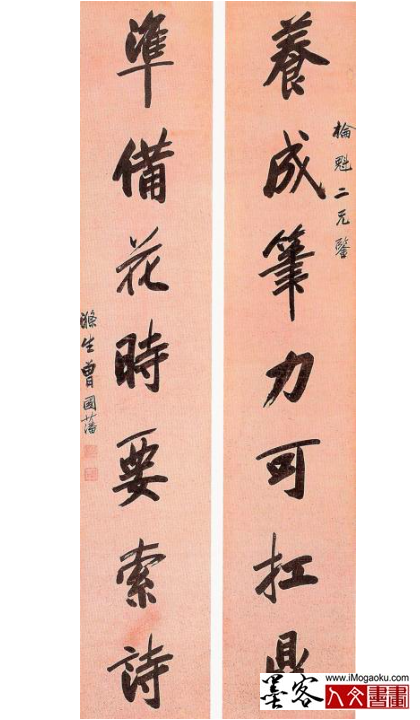 養成筆力可扛鼎
榆魁二兄鑒
準備花時要索詩
滌生曾國藩
www.iMogaoku.com
墨客
人文書畫